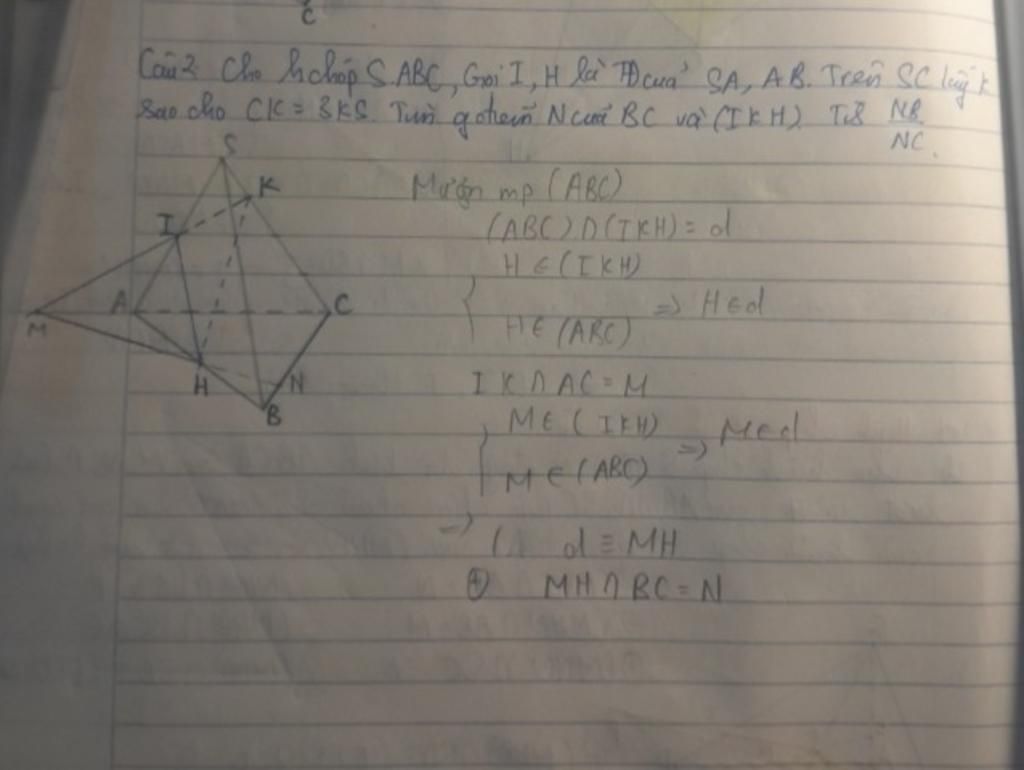 C
Câu 2 Cho h chóp S.ABC, Gọi I, H là TĐ của SA, AB. Trên SC lấy K
sao cho CK = 3KS. Tìm gđiểm N của BC và (IKH). Tỉ số NB/NC.
S
K
Mượn mp (ABC)
I
(ABC)∩(IKH) = d
H ∈ (IKH)
M A C
=> H∈d
H ∈ (ABC)
H N
IK ∩ AC = M
B
M ∈ (IKH)
=> M∈d
M ∈ (ABC)
=> d ≡ MH
⊕ MH ∩ BC = N